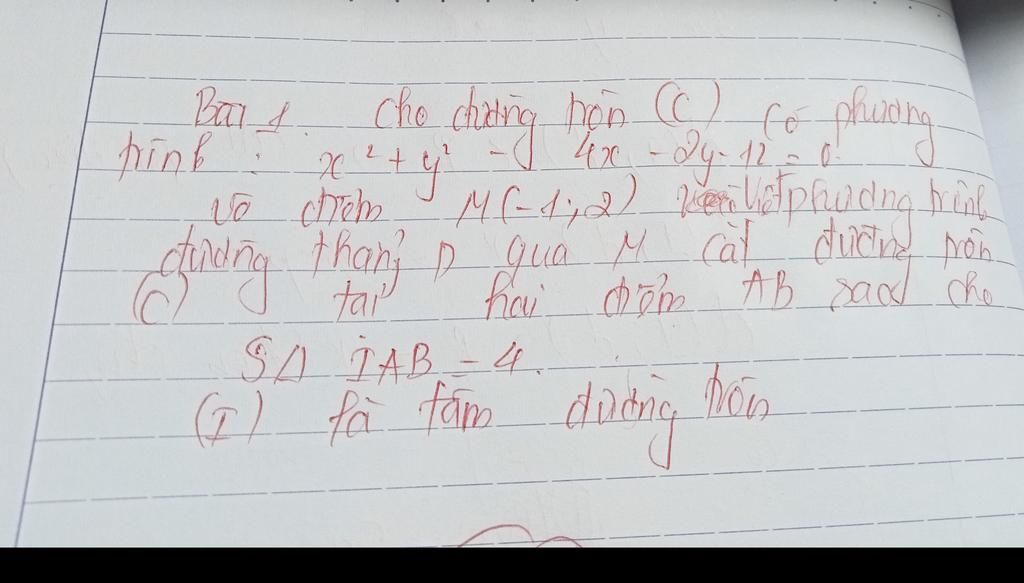 Bài 1. Cho đường tròn (C) có phương
trình : x² + y² - 4x - 2y - 12 = 0
vō điểm M(-1;2) Viết phương trình
đường thẳng D qua M cắt đường tròn
(C) tại hai điểm AB sao cho
SΔ IAB = 4.
(I) là tâm đường tròn